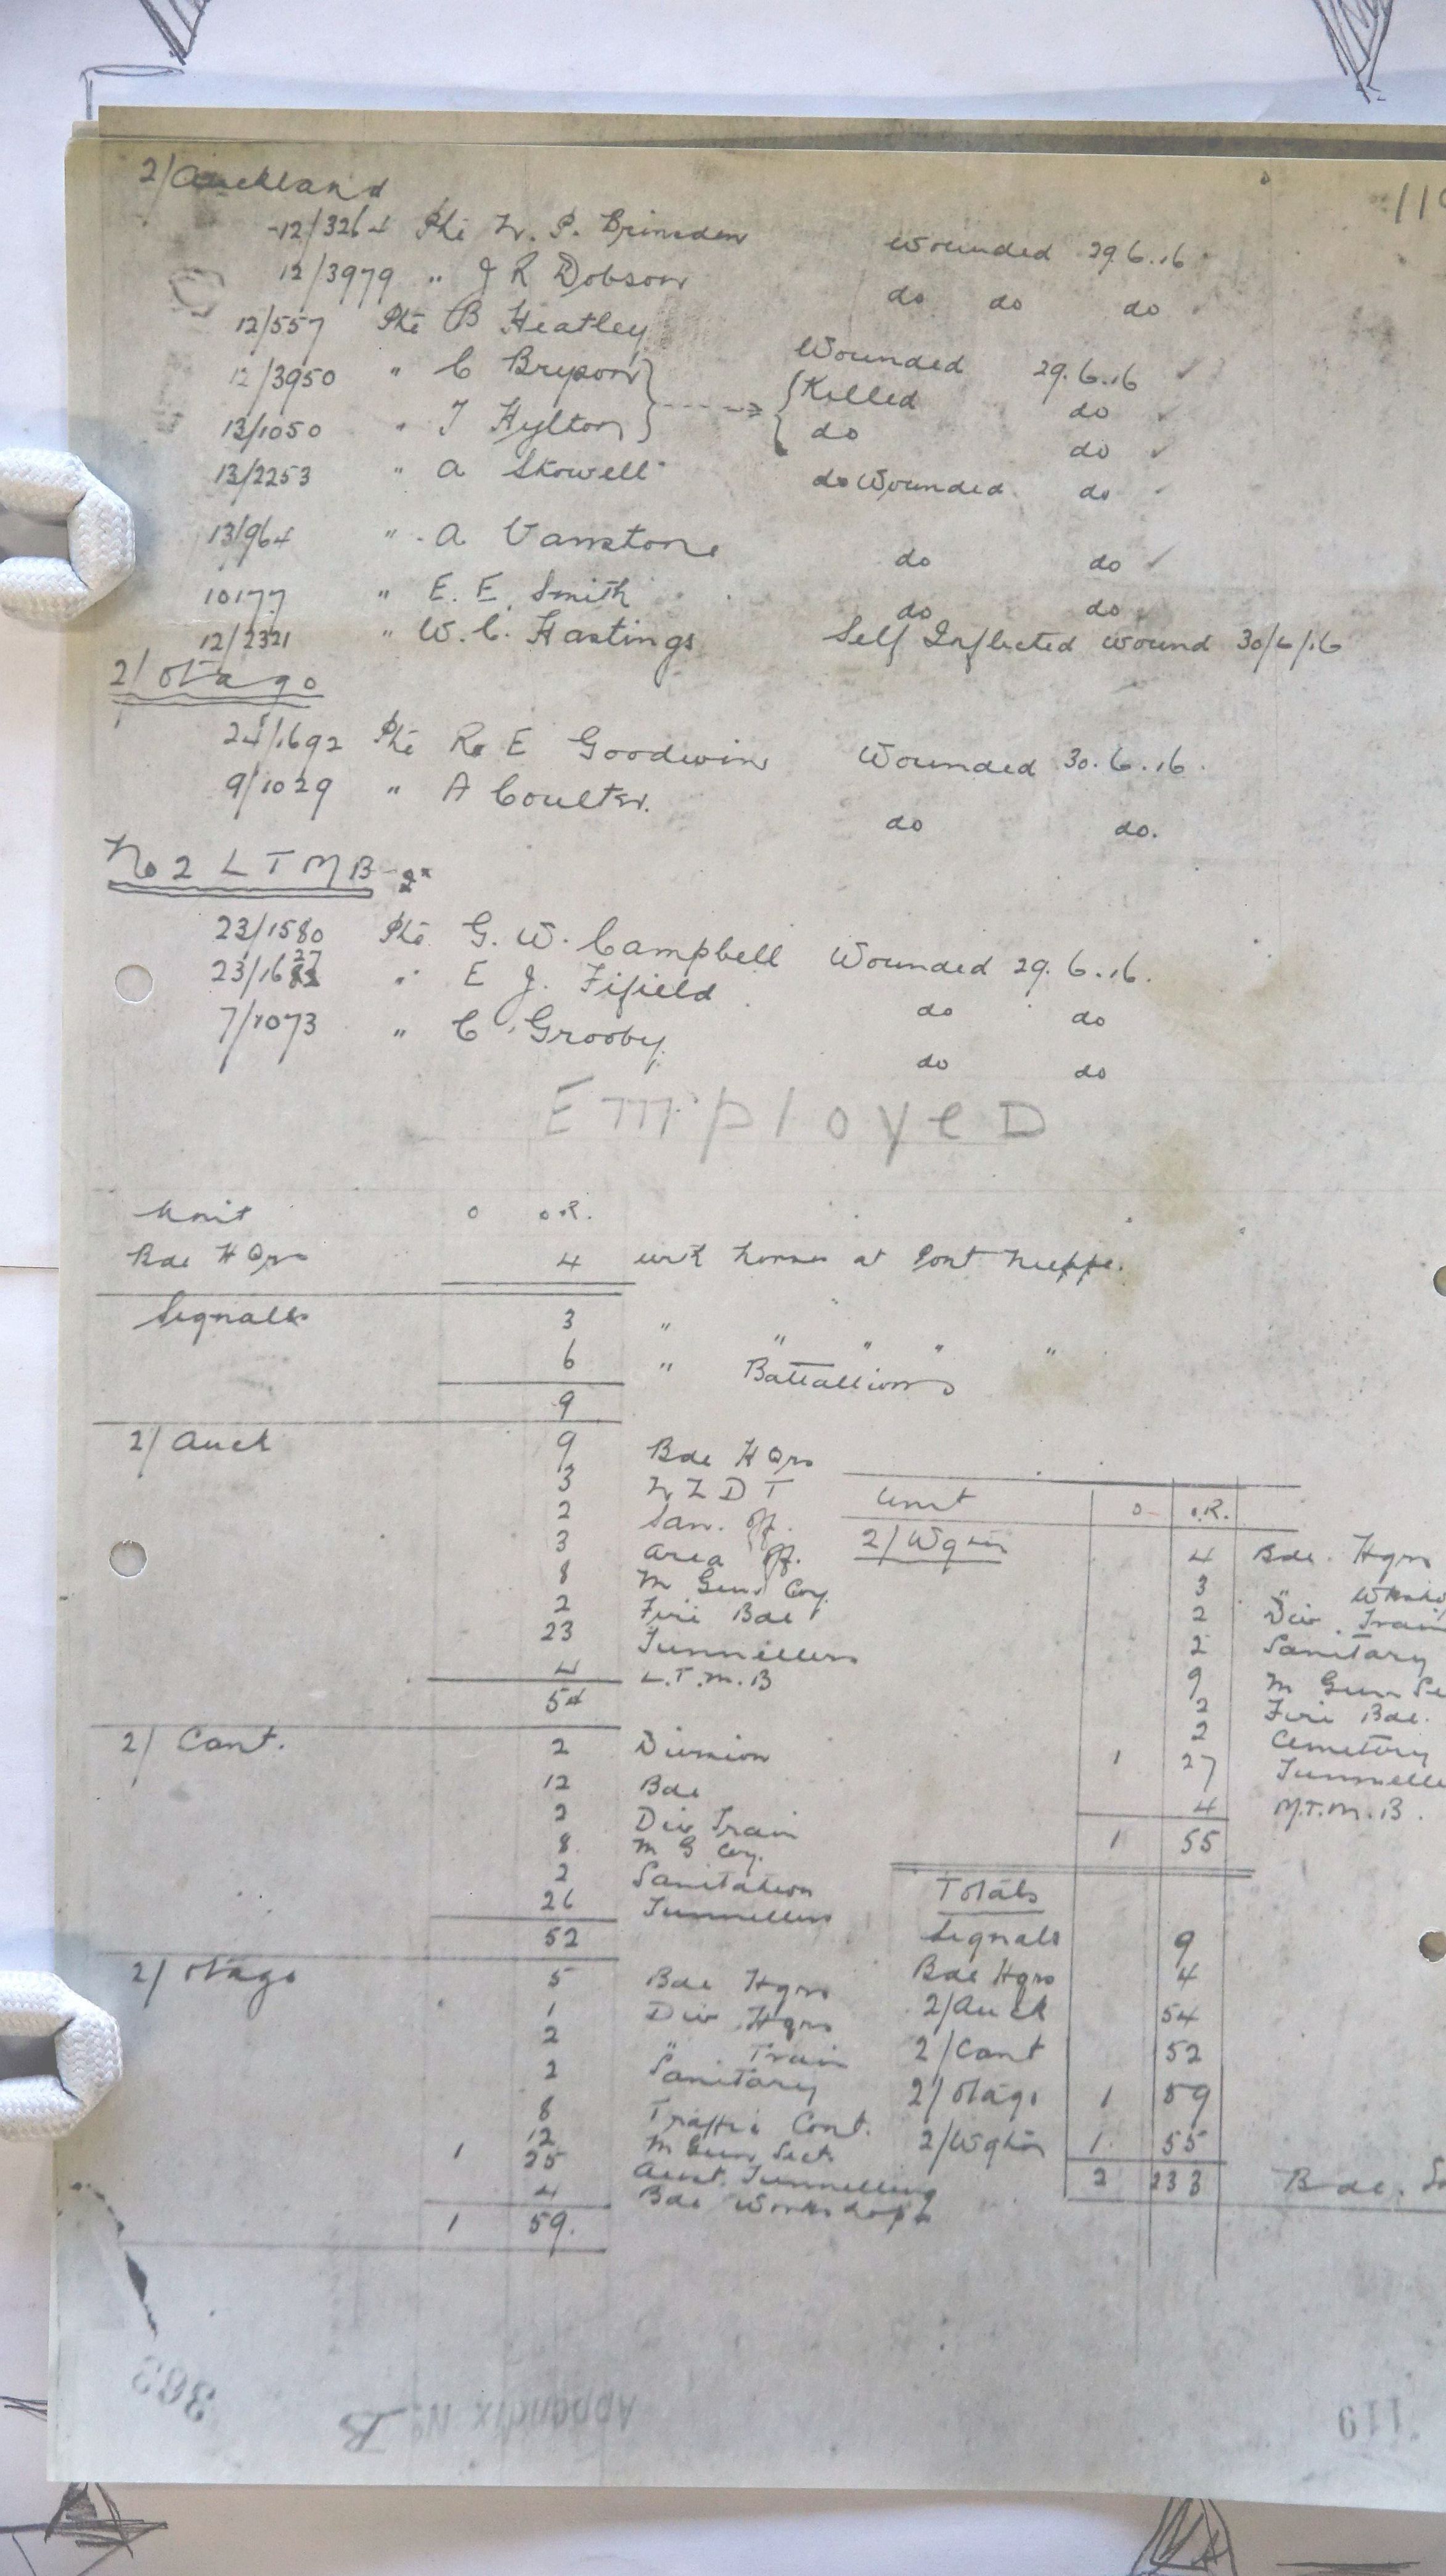 119
2/Auckland
12/3264 Pte W. P. Brinsden Wounded 29.6.16
12/3979 " J R Dobson do do do
12/557 Pte B Heatley Wounded 29.6.16 ✓
12/3950 " C Bryson Killed do ✓
13/1050 " T Hylton do do ✓
13/2253 " A Stowell do Wounded do
13/964 " A Vanstone do do ✓
10177 " E. E. Smith do do
12/2321 " W. C. Hastings Self Inflected wound 30/6/16
2/Otago
24/1692 Pte R E Goodwin Wounded 30.6.16.
9/1029 " A Coulter. do do.
No 2 L T M B
23/1580 Pte G. W. Campbell Wounded 29.6.16.
23/1627 " E J. Fifield do do
7/1073 " C Grooby. do do
EmployeD
Unit O O.R.
Bde H Qrs 4 with horses at Pont Nieppe.
Signalls 3 " " " " "
6 " Battallions
9
2/ Auck 9 Bde H Qrs
3 N Z D T
2 San. Off.
3 Area Off.
8 M Gun Coy.
2 Firi Bde
23 Tunnillers
4 L.T.M.B
54
2/ Cant. 2 Division
12 Bde
2 Div Train
8 M G Coy.
2 Sanitation
26 Tunnellers
52
2/ Otago 5 Bde Hqrs
1 Div Hqrs
2 " Train
2 Sanitary
8 Traffic Cont.
12 M Gun Sect.
1 25 Aust. Tunnelling
4 Bde Workshops
1 59.
Unit O O.R.
2/Wgtn 4 Bde. Hqrs
3 "
2 Div. Train
2 Sanitary
9 M Gun Se
2 Firi Bde.
2 Cemetery
1 27 Tunnelle
4 M.T.M.B.
1 55
Totals
Signals 9
Bde Hqrs 4
2/Auck 54
2/Cant 52
2/Otago 1 59
2/Wgtn 1. 55
2 233 Bde.
363
Appendix No B
119